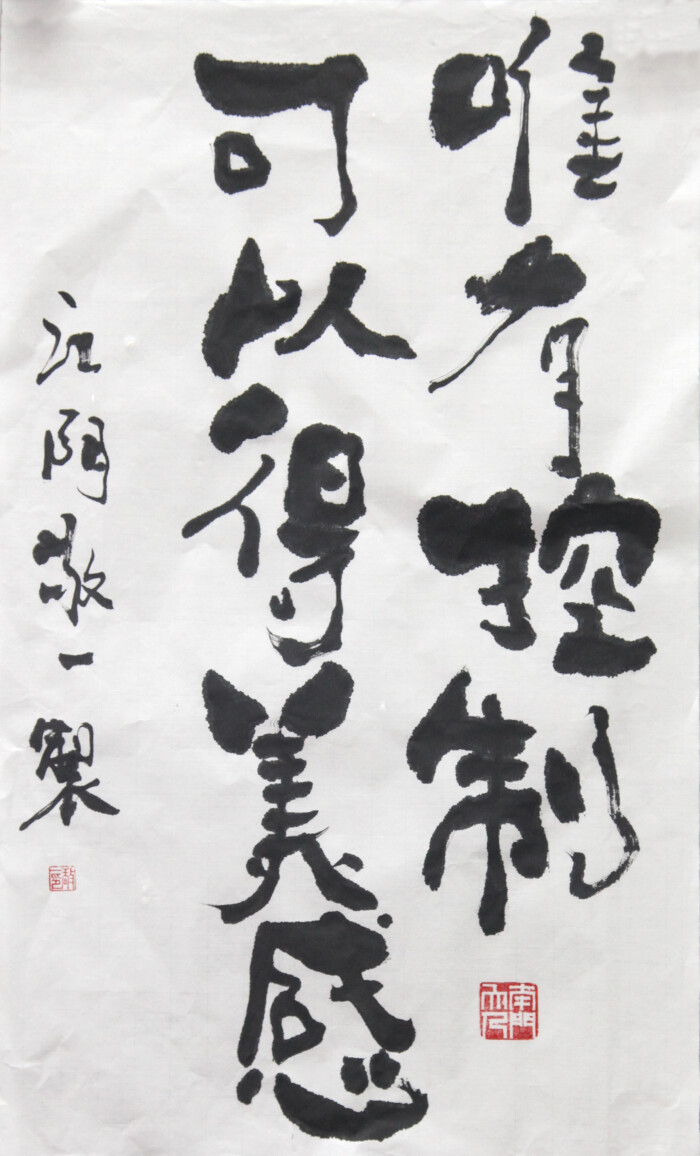 唯有控制
可以得美感
江阴敬一製
南門